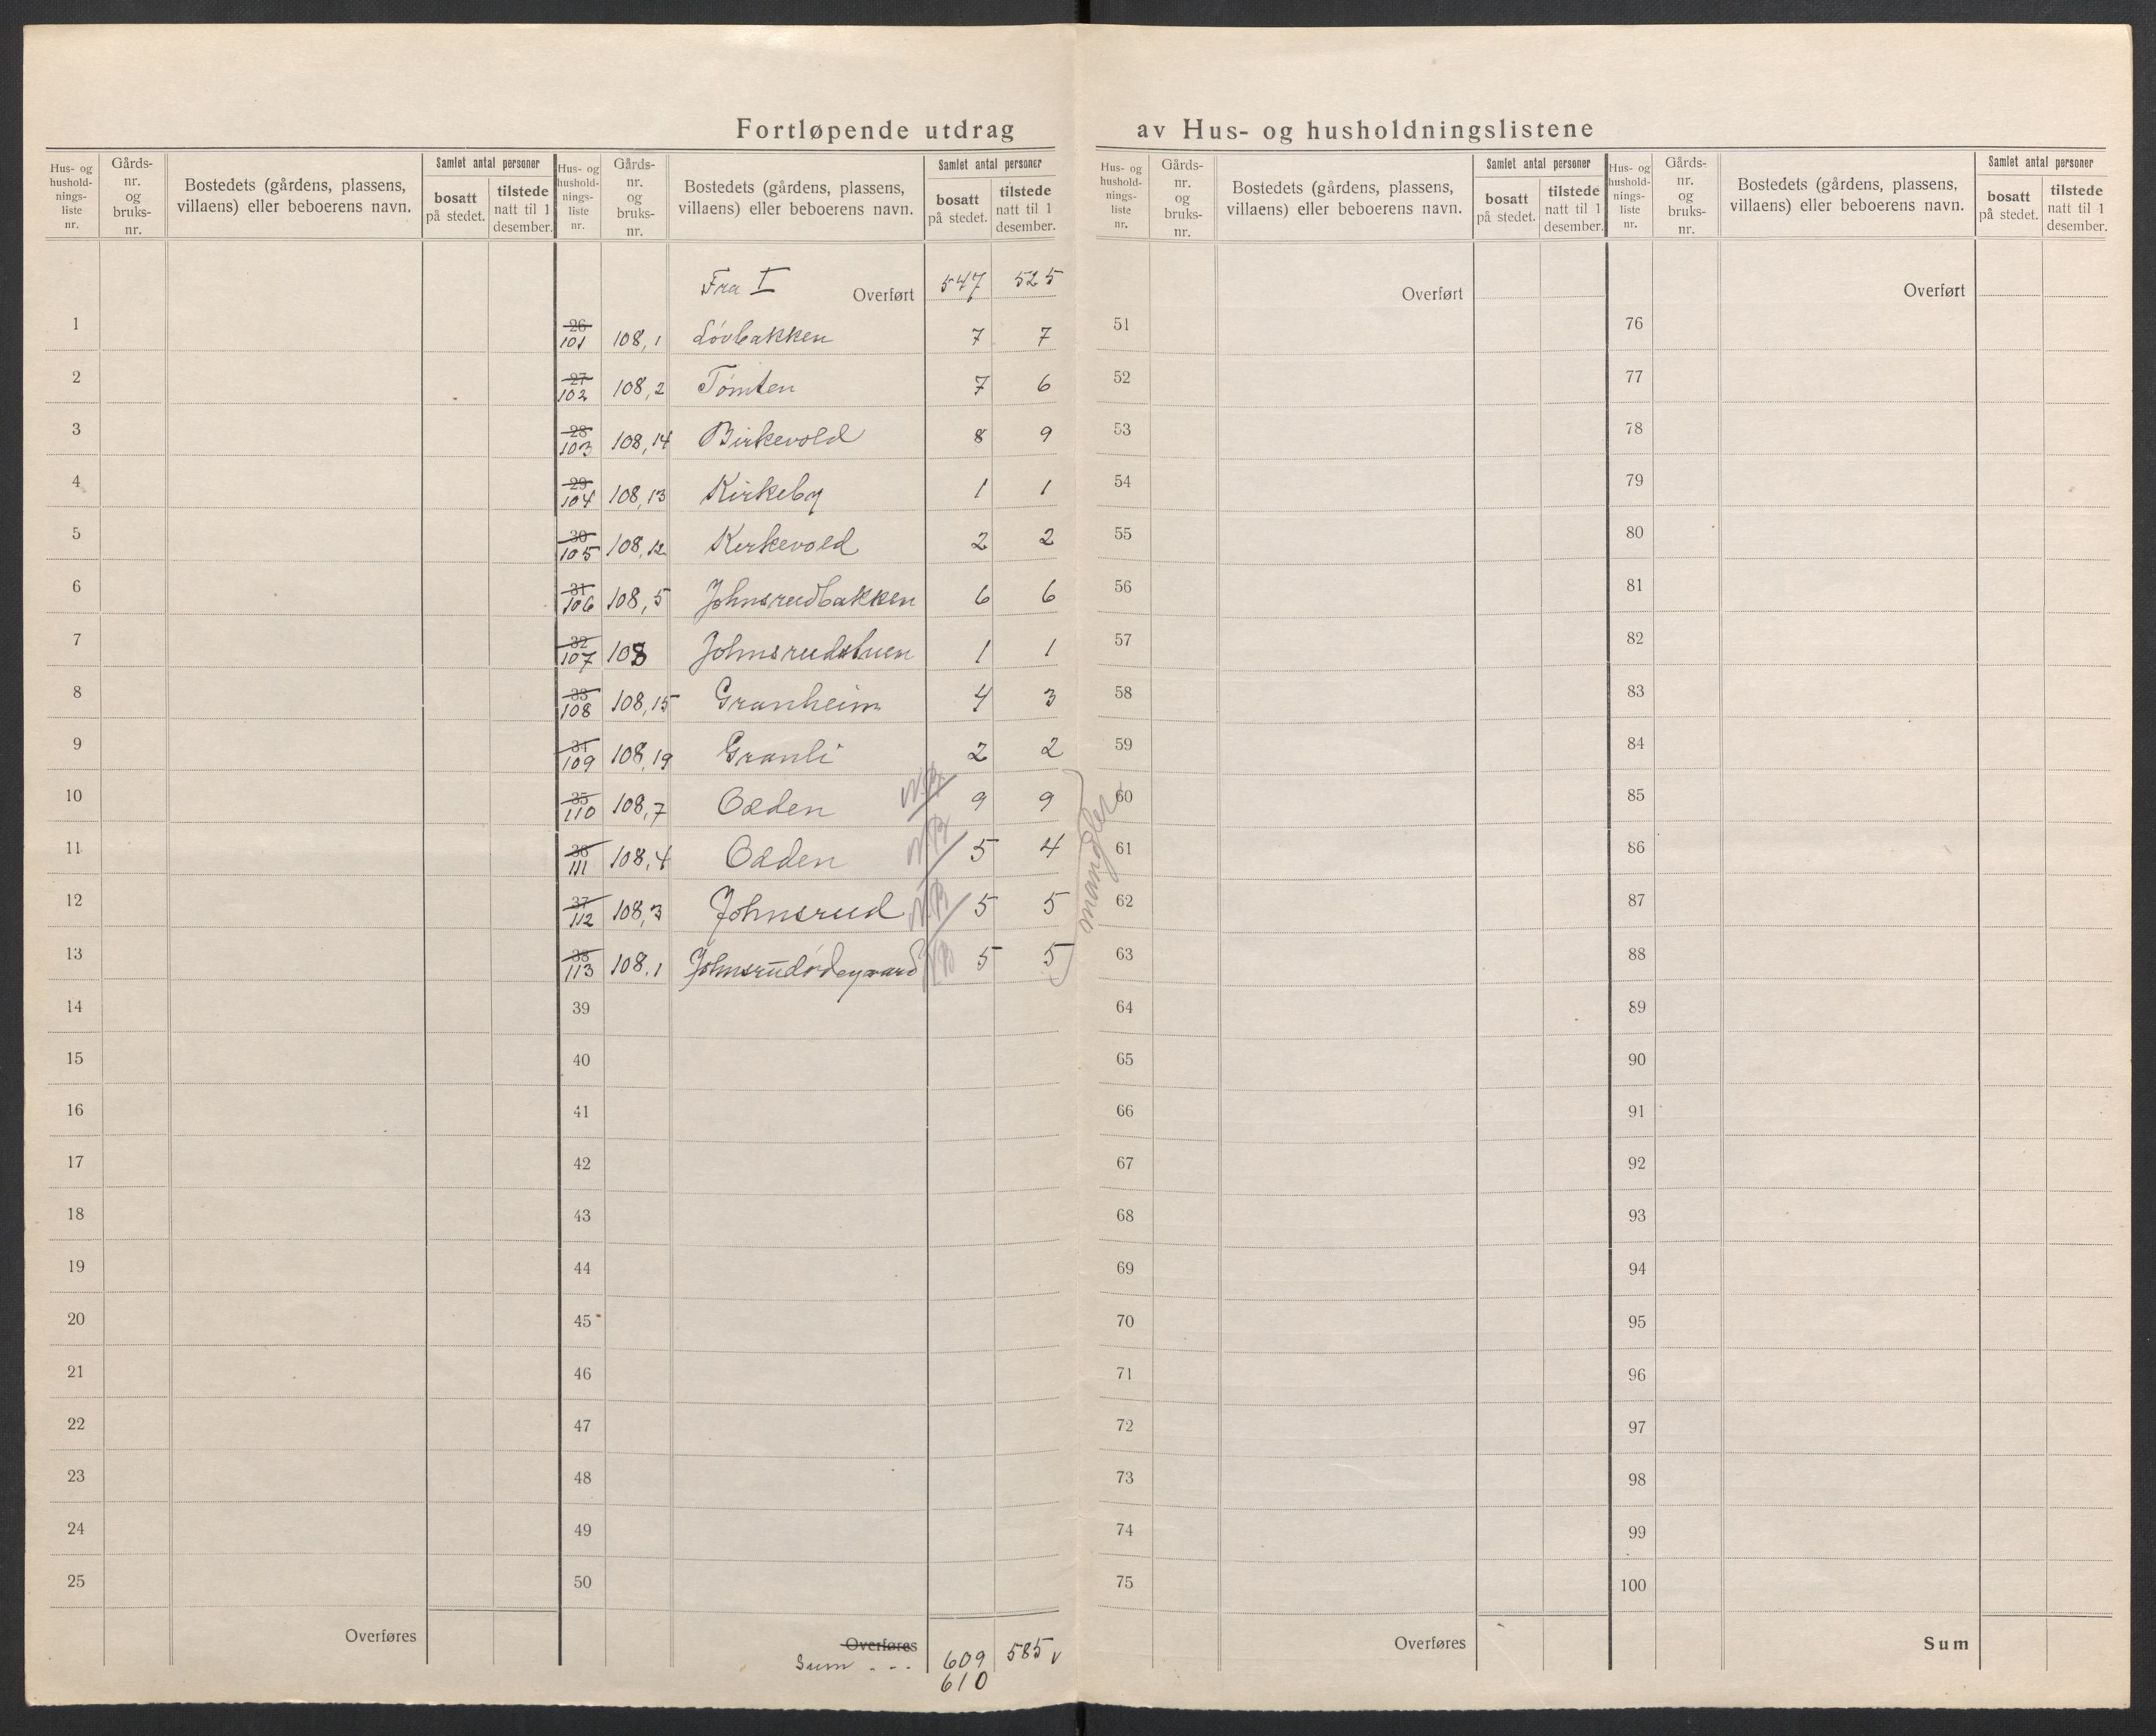 Fortløpende utdrag av Hus- og husholdningslistene
Hus- og hushold-nings-liste nr. Gårds-nr. og bruks-nr. Bostedets (gårdens, plassens, villaens) eller beboerens navn. Samlet antal personer bosatt på stedet. tilstede natt til 1 desember. Hus- og hushold-nings-liste nr. Gårds-nr. og bruks-nr. Bostedets (gårdens, plassens, villaens) eller beboerens navn. Samlet antal personer bosatt på stedet. tilstede natt til 1 desember. Hus- og hushold-nings-liste nr. Gårds-nr. og bruks-nr. Bostedets (gårdens, plassens, villaens) eller beboerens navn. Samlet antal personer bosatt på stedet. tilstede natt til 1 desember. Hus- og hushold-nings-liste nr. Gårds-nr. og bruks-nr. Bostedets (gårdens, plassens, villaens) eller beboerens navn. Samlet antal personer bosatt på stedet. tilstede natt til 1 desember.
Fra I Overført 547 525 Overført Overført
1 26 101 108,1 Løvbakken 7 7 51 76
2 27 102 108,2 Tømten 7 6 52 77
3 28 103 108,14 Birkevold 8 9 53 78
4 29 104 108,13 Kirkeby 1 1 54 79
5 30 105 108,12 Kirkevold 2 2 55 80
6 31 106 108,5 Johnsrudbakken 6 6 56 81
7 32 107 108 Johnsrudstuen 1 1 57 82
8 33 108 108,15 Granheim 4 3 58 83
9 34 109 108,19 Granli 2 2 59 84
10 35 110 108,7 Odden NB 9 9 60 85
11 36 111 108,4 Odden NB 5 4 61 86
12 37 112 108,3 Johnsrud NB 5 5 62 87
13 38 113 108,1 Johnsrudødegaard NB 5 5 63 88
mangler
14 39 64 89
15 40 65 90
16 41 66 91
17 42 67 92
18 43 68 93
19 44 69 94
20 45 70 95
21 46 71 96
22 47 72 97
23 48 73 98
24 49 74 99
25 50 75 100
Overføres Overføres Overføres Sum
Sum 609 585 v
610